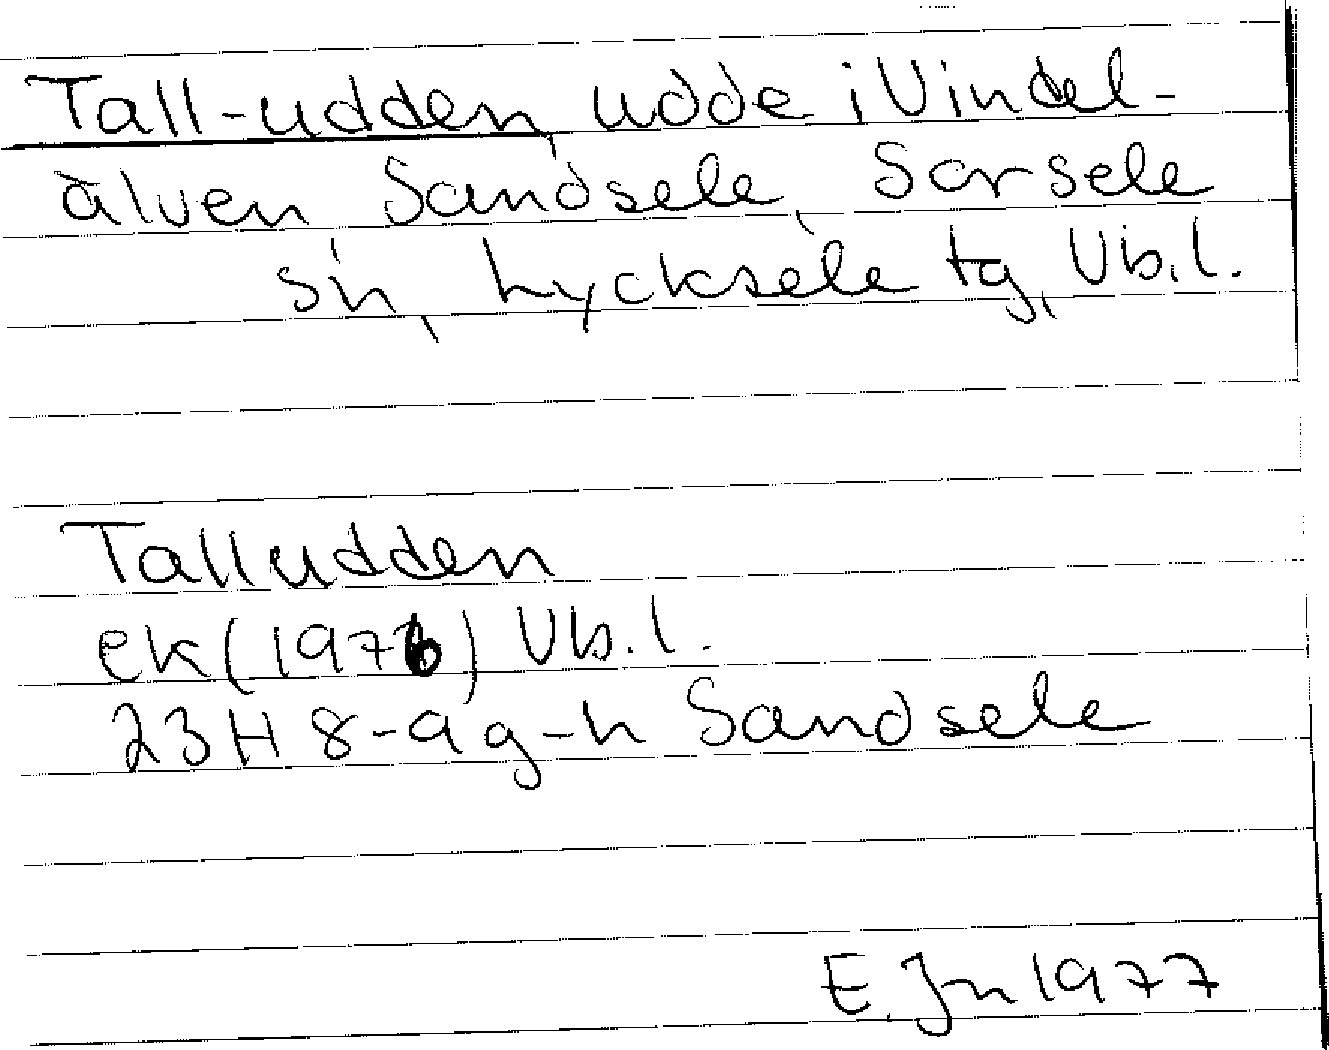 Tall-udden, udde i Vindel-
älven Sandsele, Sorsele
sn, Lycksele tg, Vb.l.
Talludden
ek (1976) Vb.l.
23H 8-9 g-h Sandsele
E. Jn 1977